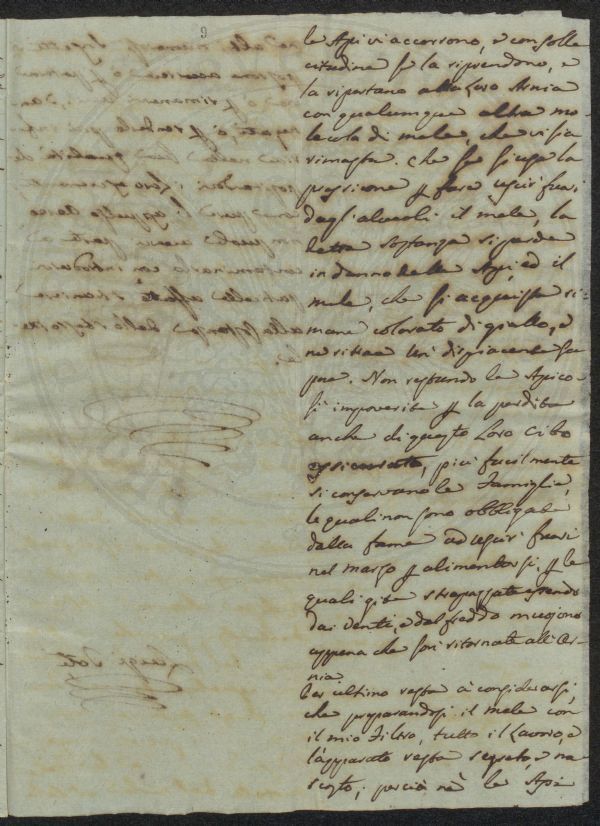 9
le Api vi accorrono, e con solle
citudine se la riprendono, e
la riportano alla Loro Arnia
con qualunque altra mo
lecola di mele, che vi sia
rimasta. Che se si usa la
pressione p farè uscir fuori
dagli alveoli il mele, la
detta sostanza si perde
in danno delle Api, ed il
mele, che si acquista ri
mane colorato di giallo, e
ne ritrae un dispiacente sa
pore. Non restando le Api co
sì impoverite p la perdita
anche di questo Loro cibo
più facilmente
si conservano le Famiglie,
le quali non sono obbligate
dalla fame ad uscir fuori
nel marzo p alimentarsi, p le
quali gite strapazzate essendo
dai venti, e dal freddo muojono
appena che son ritornate all'Ar-
nia.
Per ultimo resta à considerarsi,
che preparandosi il mele con
il mio Filtro, tutto il Lavoro, e
l'apparato resta segreto, e na
scosto; perciò nè le Api